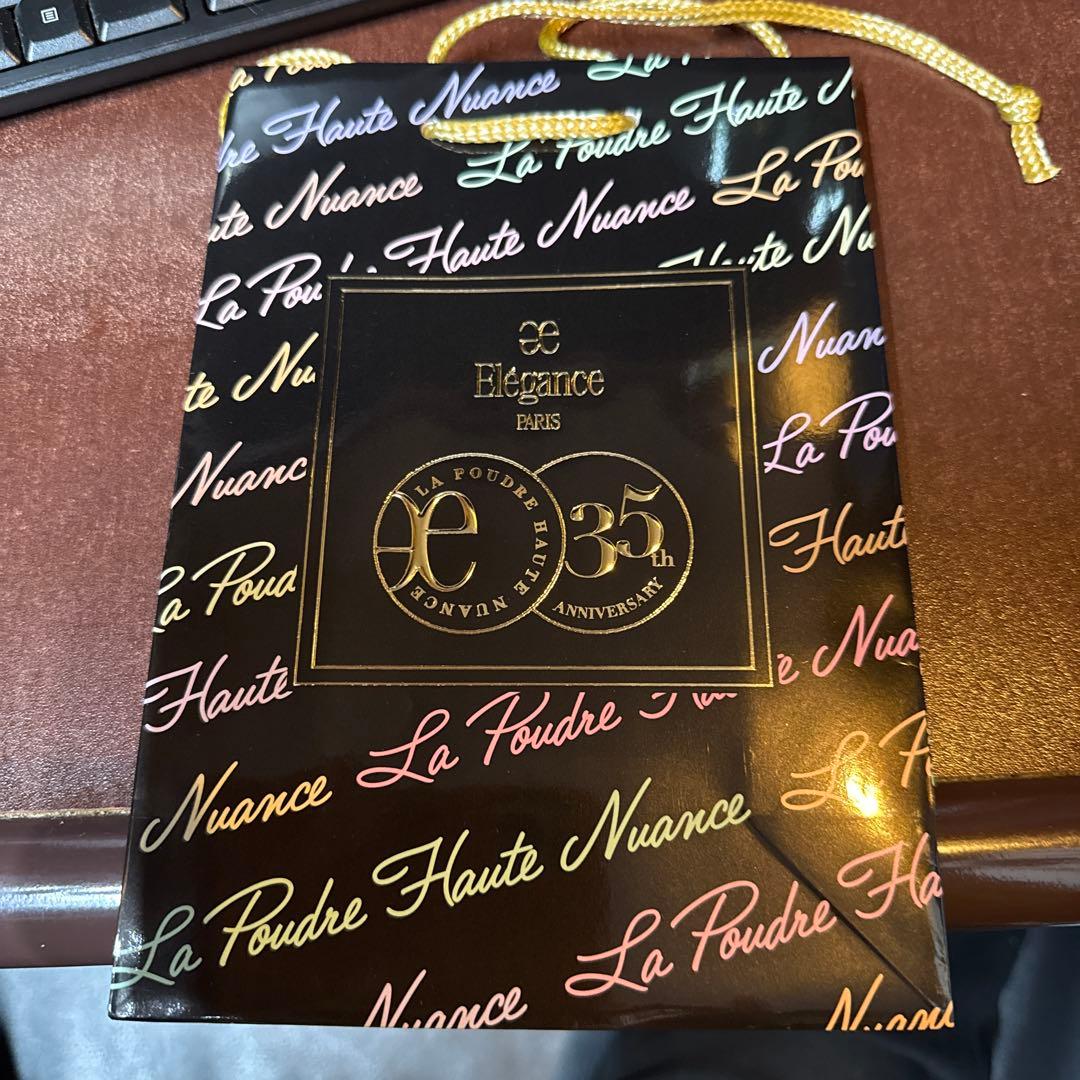 La Poudre
dre Haute Nuance
La Poudre Haute N
ute Nuance
La Pou
La Pou Haute Nuance
ute Nu
te Nu
Nuan
Nuanc
La Pou
La Poud
Haut
Haute
e Nua
La Poudre Haute
Nuance
La P
La Poudre Haute Nuance
La Poudre Ha
Nuance
Nuanc
æ
Elégance
PARIS
æ
LA POUDRE HAUTE NUANCE
35th
ANNIVERSARY